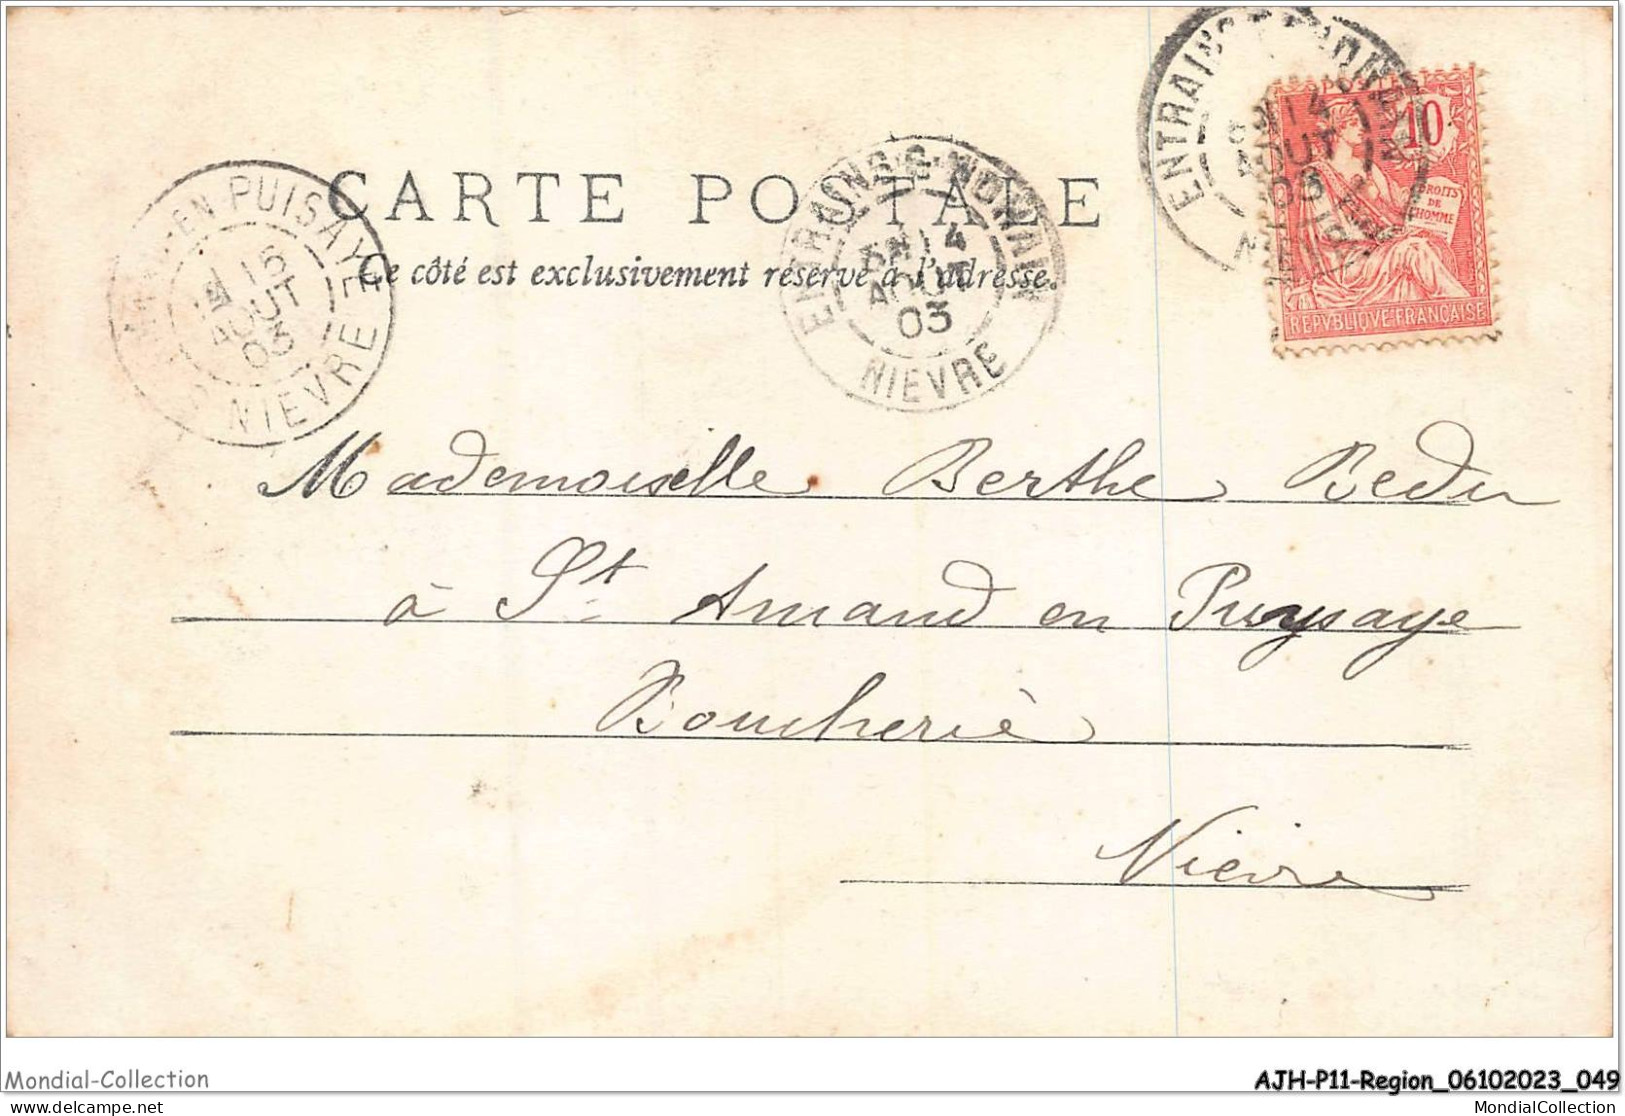 CARTE POSTALE
Ce côté est exclusivement réservé à l'adresse.
EN-PUISAYE
15
AOUT
03
NIEVRE
ENTRAINS-S-NOHAIN
14
AOUT
03
NIEVRE
ENTRAINS
14
AOUT
03
NIEVRE
POSTES
10
DROITS
DE
L'HOMME
REPVBLIQVE FRANÇAISE
Mademoiselle Berthe Bedu
à St Amand en Puysaye
Boucherie
Nièvre
Mondial-Collection
AJH-P11-Region_06102023_049
delcampe.net
MondialCollection